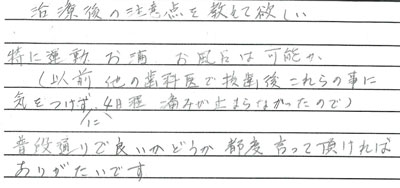 治療後の注意点を教えて欲しい
特に運動 お酒 お風呂は可能か
(以前 他の歯科医で抜歯後これらの事に
気をつけずに4日程 痛みが止まらなかったので)
普段通りで良いかどうか 都度 言って頂ければ
ありがたいです